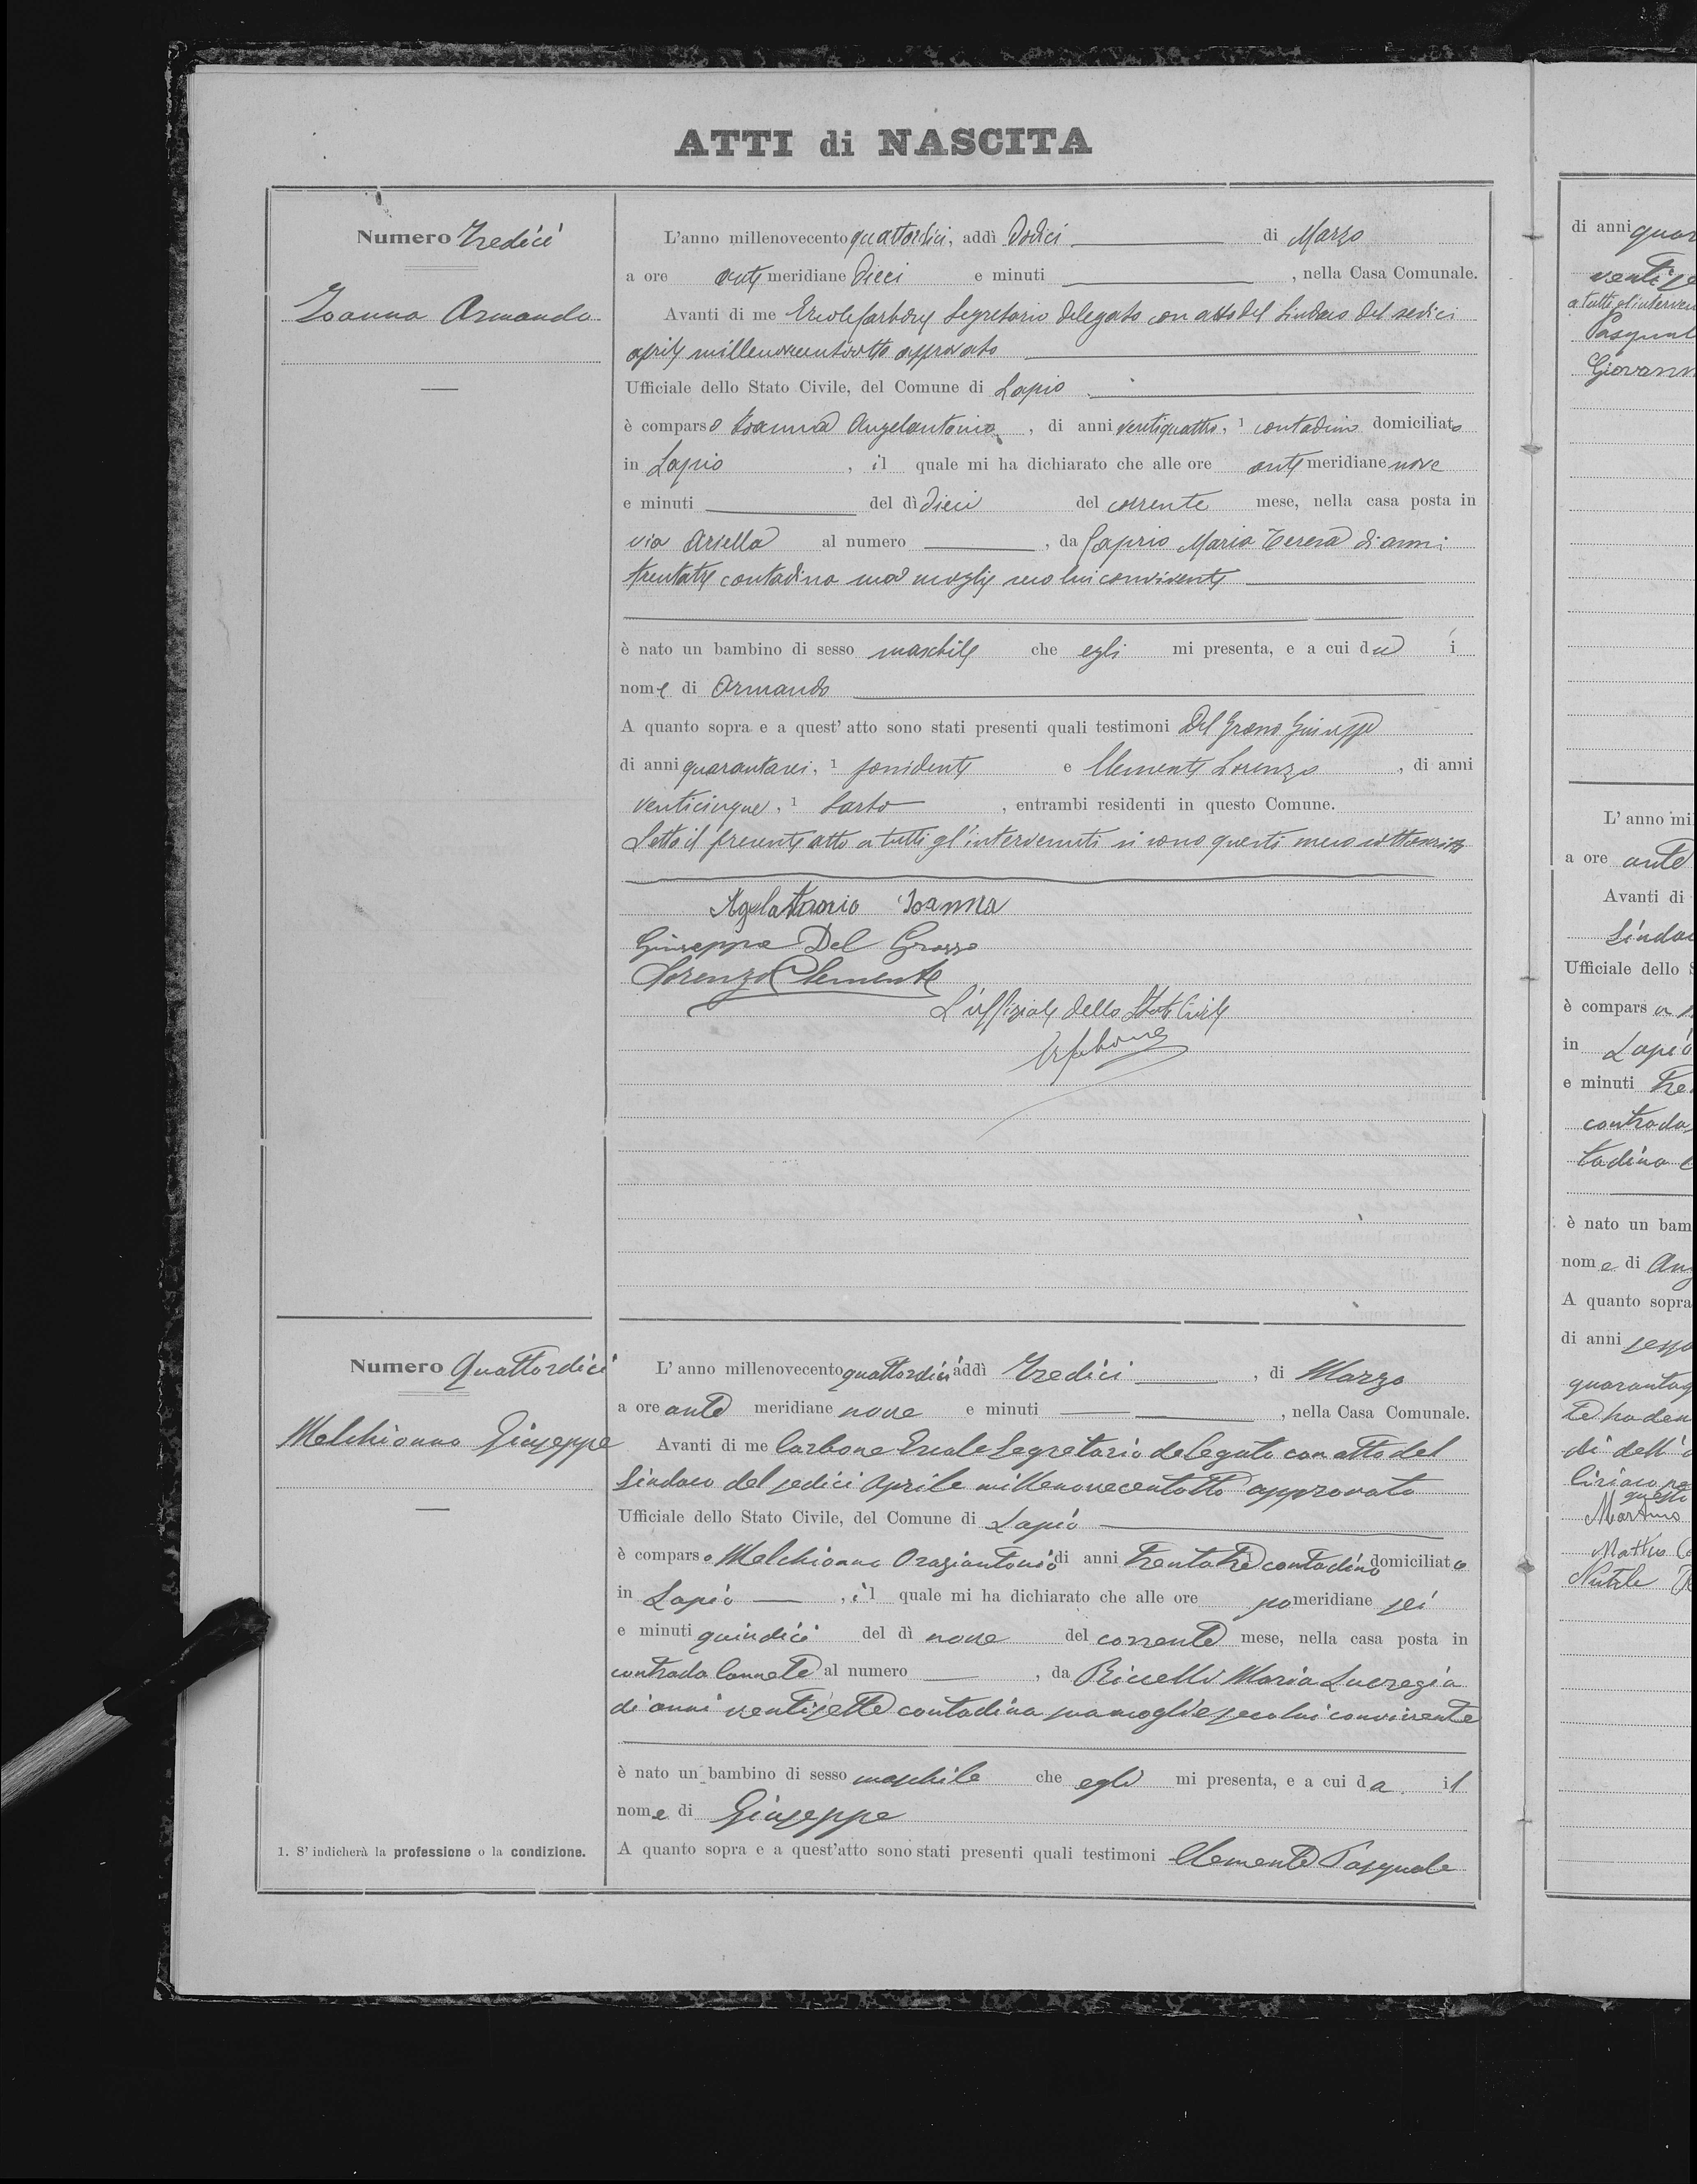 ATTI di NASCITA
Numero Tredici
Ioanna Armando
L'anno millenovecento quattordici, addì dodici di Marzo
a ore ante meridiane dieci e minuti , nella Casa Comunale.
Avanti di me Ercole Carbone Segretario delegato con atto del Sindaco del sedici
aprile millenovecentootto approvato
Ufficiale dello Stato Civile, del Comune di Lapio
è comparso Ioanna Angelantonio, di anni ventiquattro, 1 contadino domiciliato
in Lapio, il quale mi ha dichiarato che alle ore ante meridiane nove
e minuti del dì dieci del corrente mese, nella casa posta in
via Ariella al numero , da Caprio Maria Teresa di anni
trentatre contadina sua moglie seco lui convivente
è nato un bambino di sesso maschile che egli mi presenta, e a cui da i
nome di Armando
A quanto sopra e a quest'atto sono stati presenti quali testimoni Del Grosso Giuseppe
di anni quarantasei, 1 possidente e Clemente Lorenzo, di anni
venticinque, 1 Sarto, entrambi residenti in questo Comune.
Letto il presente atto a tutti gl'intervenuti si sono questi meco sottoscritti
Ioanna
Giuseppe Del Grosso
Lorenzo Clemente
L'uffiziale dello Stato Civile
Numero Quattordici
Melchionna Giuseppe
L'anno millenovecento quattordici addì Tredici, di Marzo
a ore ante meridiane nove e minuti , nella Casa Comunale.
Avanti di me Carbone Ercole Segretario delegato con atto del
Sindaco del sedici Aprile millenovecentotto approvato
Ufficiale dello Stato Civile, del Comune di Lapio
è comparso Melchionna Oraziantonio di anni trentatre contadino domiciliato
in Lapio, il quale mi ha dichiarato che alle ore pomeridiane sei
e minuti quindici del dì nove del corrente mese, nella casa posta in
contrada Cannete al numero , da Riccelli Maria Lucrezia
di anni ventisette contadina sua moglie seco lui convivente
è nato un bambino di sesso maschile che egli mi presenta, e a cui da il
nome di Giuseppe
A quanto sopra e a quest'atto sono stati presenti quali testimoni Clemente Pasquale
1. S'indicherà la professione o la condizione.
di anni
Giovann
L'anno mi
a ore ante
Avanti di
Sindac
Ufficiale dello S
è compars
in Lapio
e minuti tre
contrada
tadina
è nato un bam
nome di An
A quanto sopra
di anni sessa
Martino